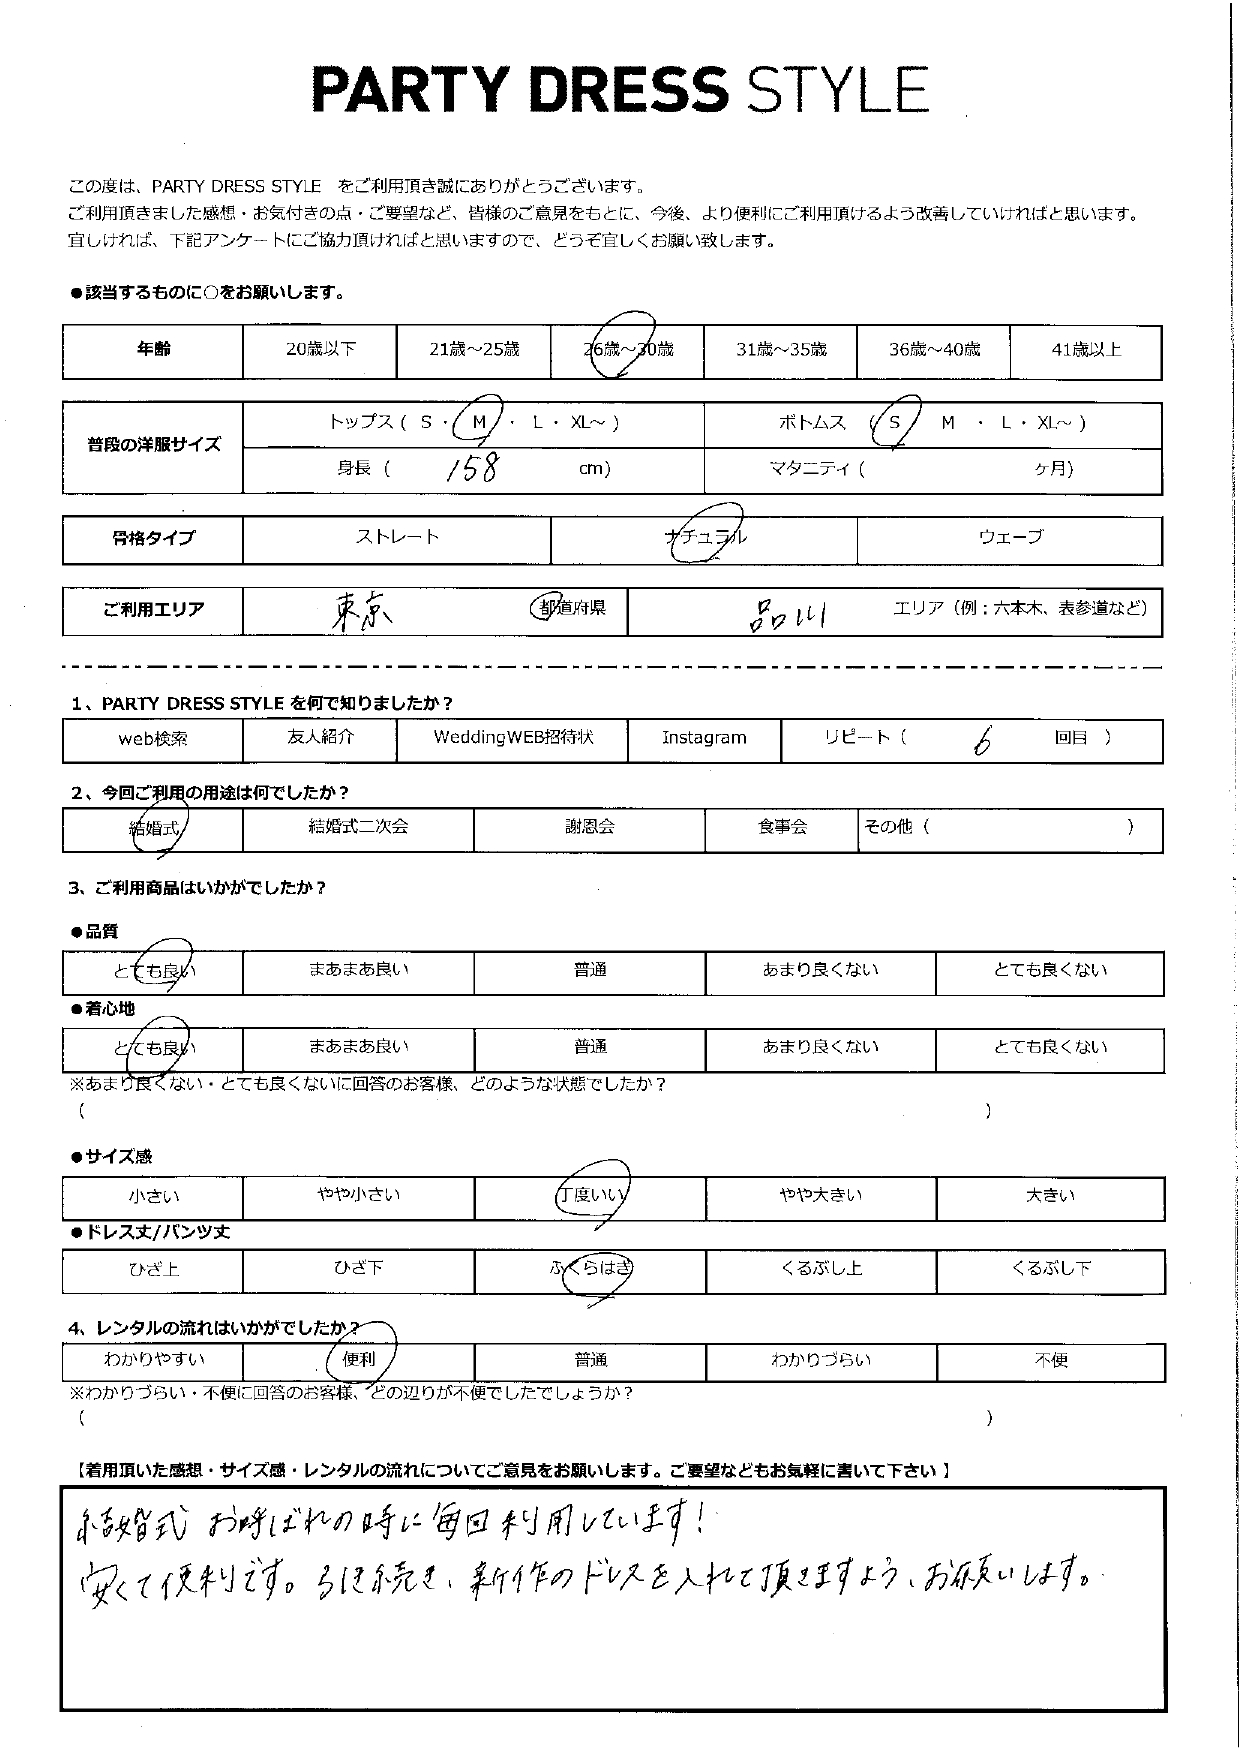 PARTY DRESS STYLE
この度は、PARTY DRESS STYLE　をご利用頂き誠にありがとうございます。
ご利用頂きました感想・お気付きの点・ご要望など、皆様のご意見をもとに、今後、より便利にご利用頂けるよう改善していければと思います。
宜しければ、下記アンケートにご協力頂ければと思いますので、どうぞ宜しくお願い致します。
●該当するものに○をお願いします。
年齢 20歳以下 21歳～25歳 26歳～30歳 31歳～35歳 36歳～40歳 41歳以上
普段の洋服サイズ トップス ( S ・ M ・ L ・ XL～ ) ボトムス ( S M ・ L ・ XL～ )
身長 ( 158 cm) マタニティ ( ヶ月)
骨格タイプ ストレート ナチュラル ウェーブ
ご利用エリア 東京 都道府県 品川 エリア（例：六本木、表参道など）
1、PARTY DRESS STYLE を何で知りましたか？
web検索 友人紹介 WeddingWEB招待状 Instagram リピート ( 6 回目 )
2、今回ご利用の用途は何でしたか？
結婚式 結婚式二次会 謝恩会 食事会 その他 ( )
3、ご利用商品はいかがでしたか？
●品質
とても良い まあまあ良い 普通 あまり良くない とても良くない
●着心地
とても良い まあまあ良い 普通 あまり良くない とても良くない
※あまり良くない・とても良くないに回答のお客様、どのような状態でしたか？
( )
●サイズ感
小さい やや小さい 丁度いい やや大きい 大きい
●ドレス丈/パンツ丈
ひざ上 ひざ下 ふくらはぎ くるぶし上 くるぶし下
4、レンタルの流れはいかがでしたか？
わかりやすい 便利 普通 わかりづらい 不便
※わかりづらい・不便に回答のお客様、どの辺りが不便でしたでしょうか？
( )
【着用頂いた感想・サイズ感・レンタルの流れについてご意見をお願いします。ご要望などもお気軽に書いて下さい】
結婚式 お呼ばれの時に毎回利用しています！
安くて便利です。引き続き、新作のドレスを入れて頂きますよう、お願いします。